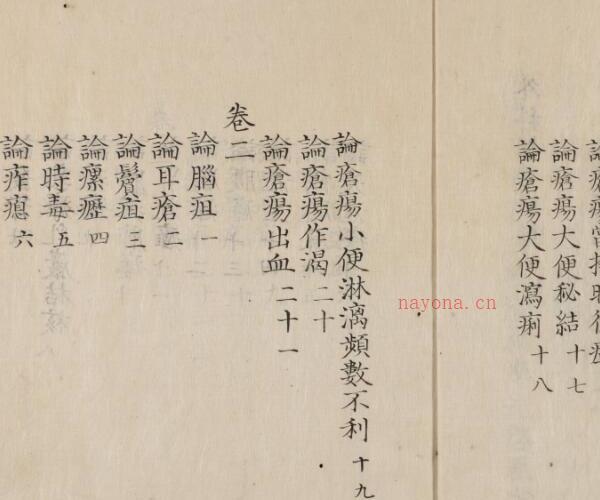 論瘡瘍當
論瘡瘍大便秘結 十七
論瘡瘍大便瀉痢 十八
論瘡瘍小便淋漓頻數不利 十九
論瘡瘍作渴 二十
論瘡瘍出血 二十一
卷二
論腦疽 一
論耳瘡 二
論鬢疽 三
論瘰癧 四
論時毒 五
論痄 六
nayona.cn